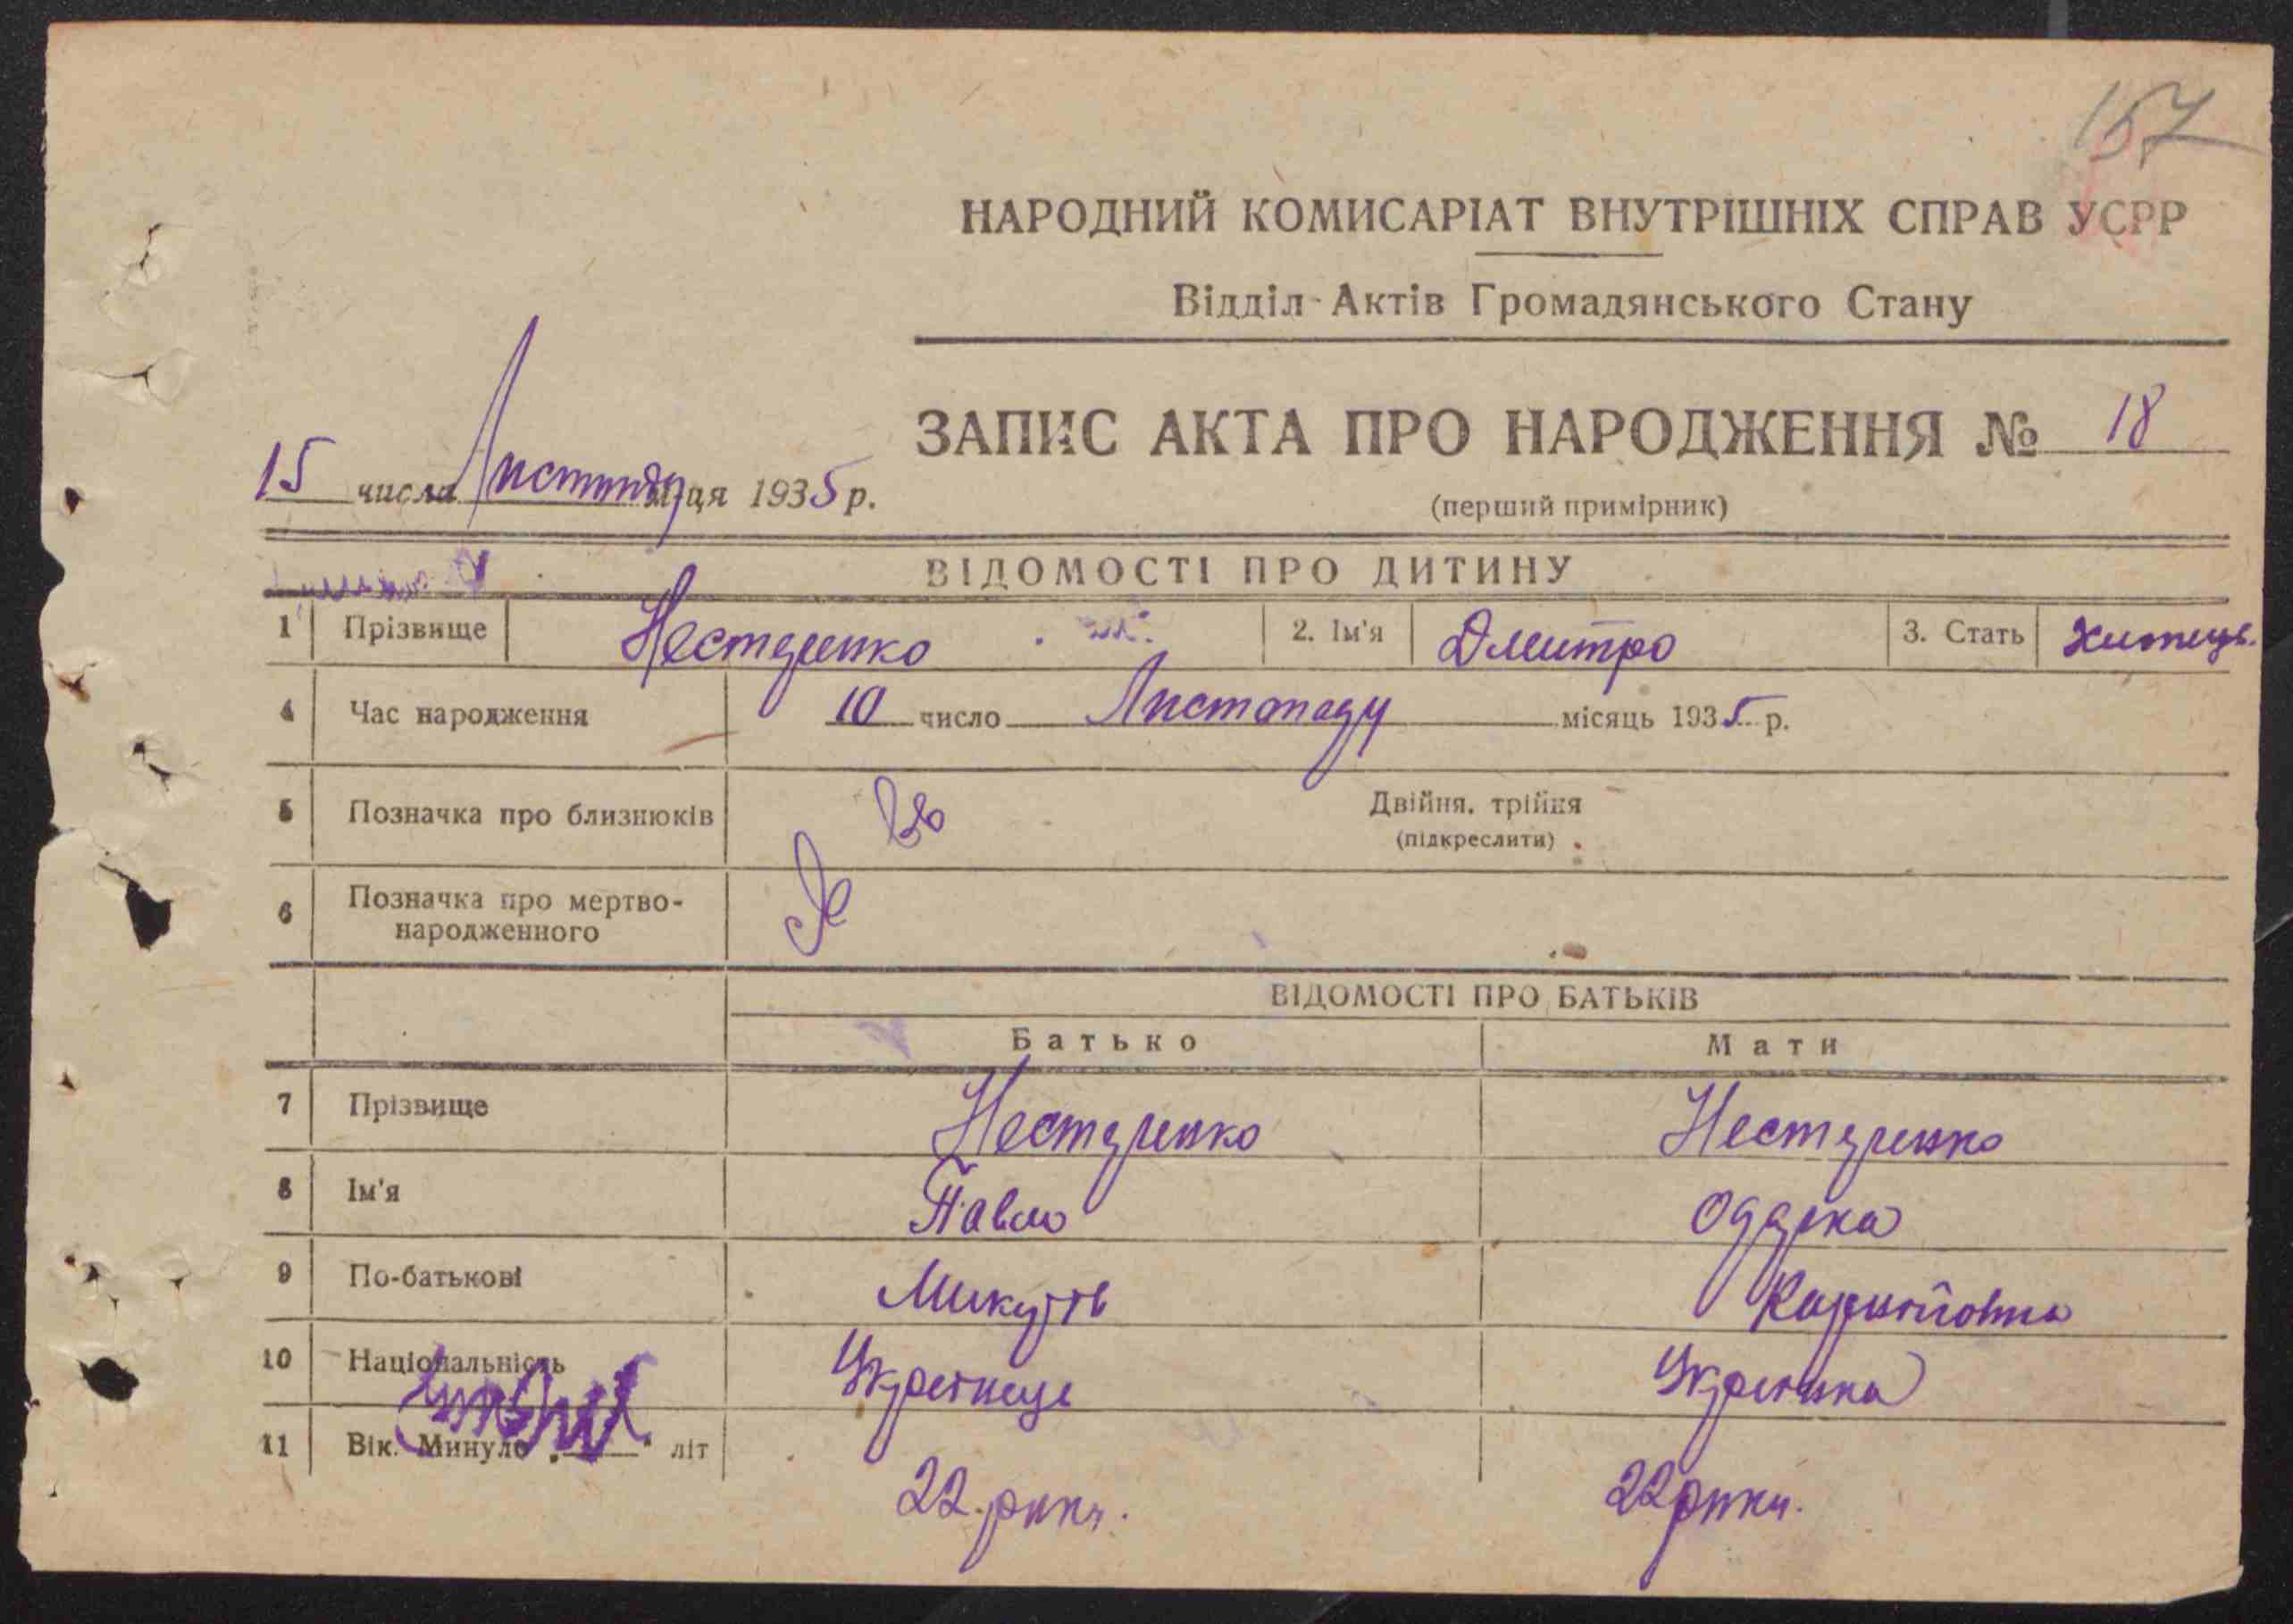 157
НАРОДНИЙ КОМИСАРІАТ ВНУТРІШНІХ СПРАВ УСРР
Відділ Актів Громадянського Стану
ЗАПИС АКТА ПРО НАРОДЖЕННЯ № 18
15 числа Листопаду м-ця 1935 р.
(перший примірник)
ВІДОМОСТІ ПРО ДИТИНУ
1 Прізвище Нестеренко 2. Ім'я Дмитро 3. Стать
4 Час народження 10 число Листопаду місяць 1935 р.
5 Позначка про близнюків Двійня, трійня
(підкреслити)
6 Позначка про мертво-
народженного
ВІДОМОСТІ ПРО БАТЬКІВ
Батько Мати
7 Прізвище Нестеренко Нестеренко
8 Ім'я Павло Одарка
9 По-батькові
10 Національність Українець Українка
11 Вік. Минуло літ 22 роки. 22 роки.